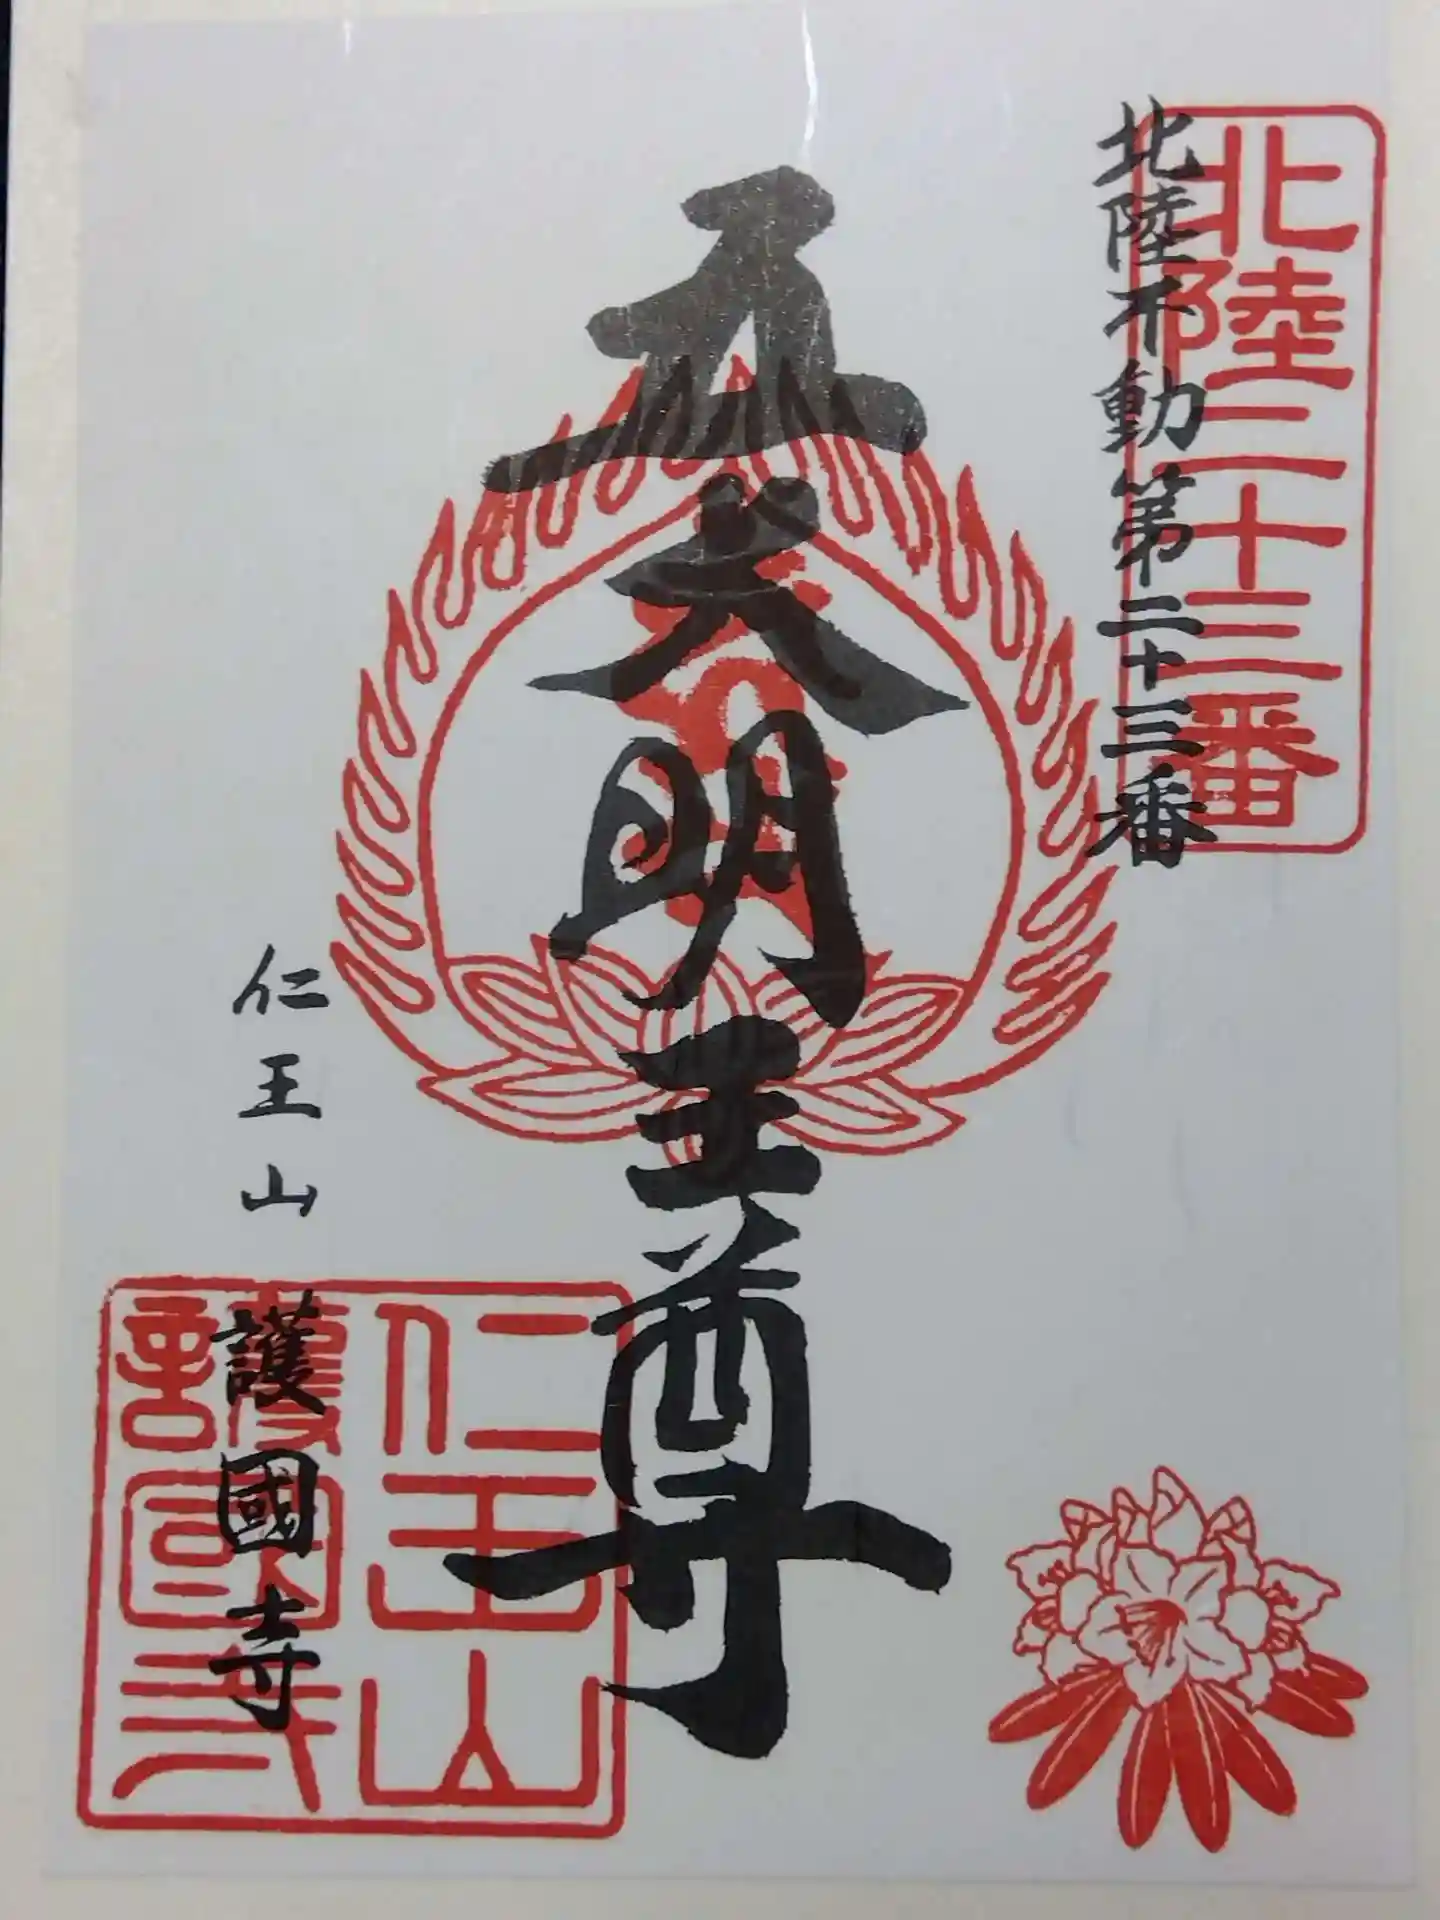 北陸二十三番
北陸不動第二十三番
五大明王尊
仁王山
護國寺
仁王山
護國寺